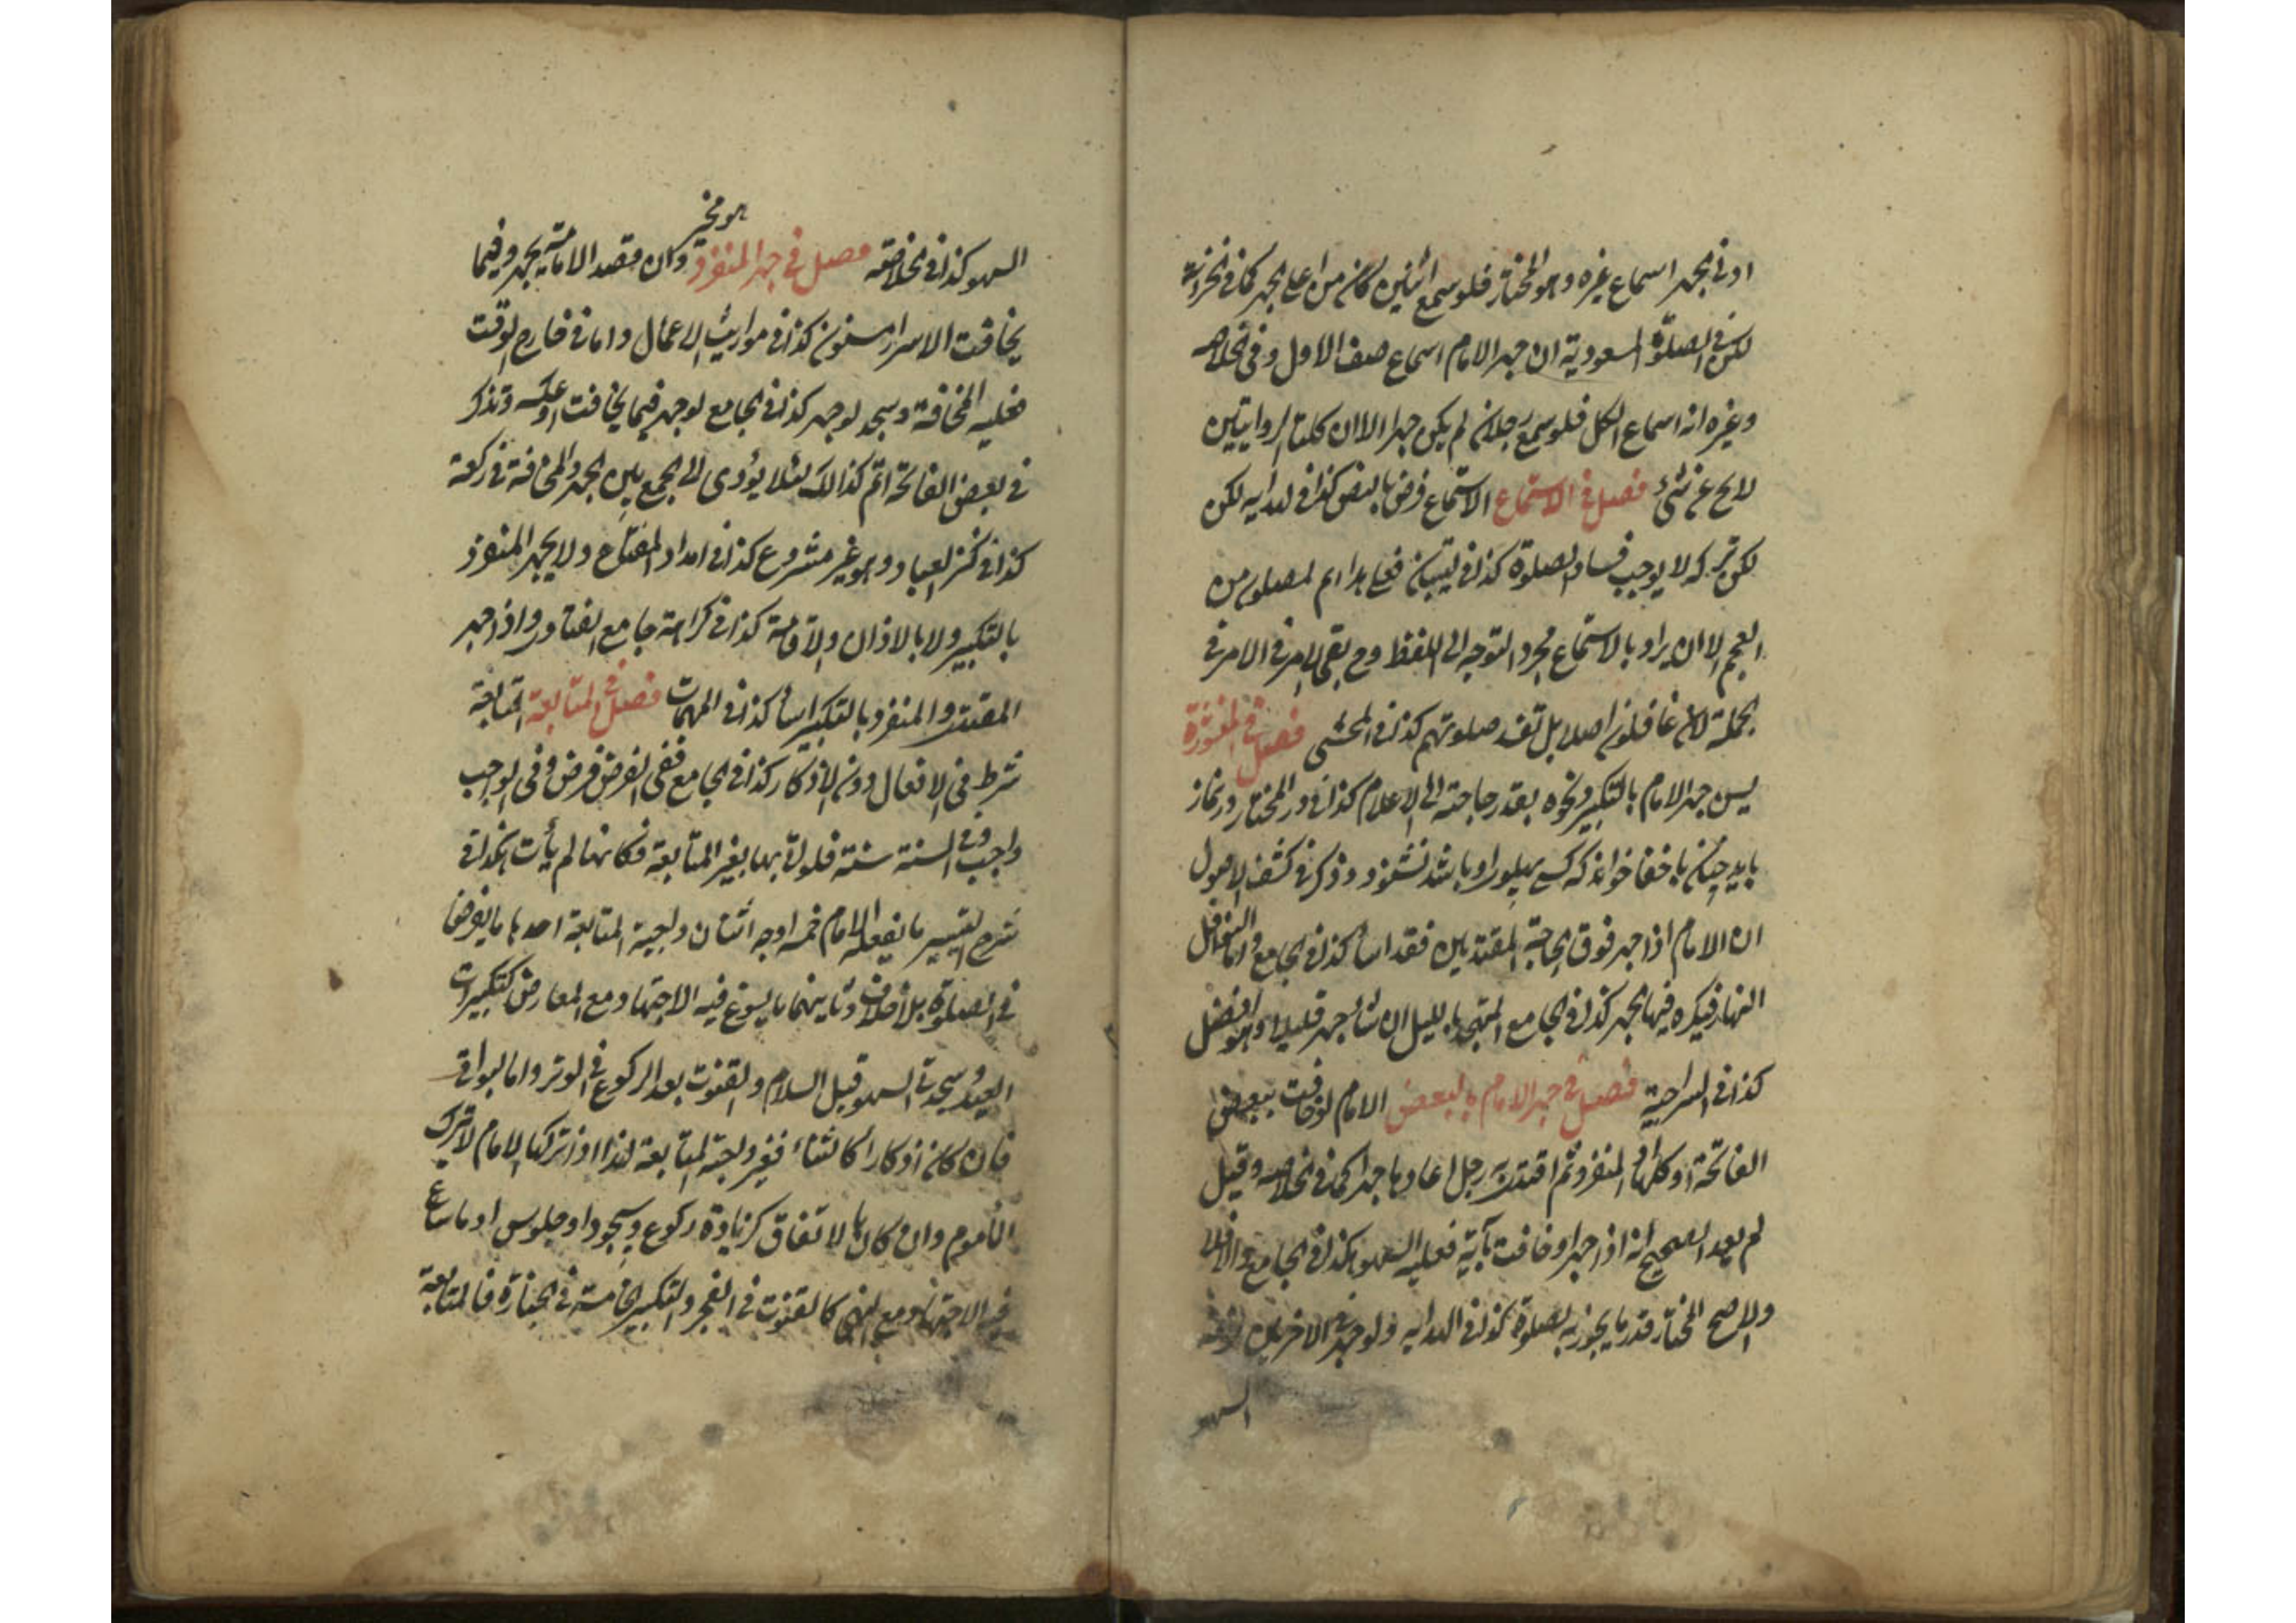 ادنى الجهر اسماع غيره وهو المختار فلو سمع اثنين كان من اعلى الجهر كما في الخزانة
لكن في الصلوة المسعودية ان جهر الامام اسماع صف الاول وفي الخلاصه
وغيره انه اسماع الكل فلو سمع رجلان لم يكن جهرا الا ان كلتا الروايتين
لا يخ عن شئ فصل في الاستماع الاستماع فرض بالنص كذا في الهدايه لكن
لكن تركه لا يوجب فساد الصلوة كذا في فعلى هذا ام المصلون من
العجم الا ان يراد بالاستماع مجرد التوجه الى اللفظ وح بقى الامر في الامر في
الجملة لان غافلون اصلا بل تفسد صلوتهم كذا في المحشى فصل في
يسن جهر الامام بالتكبير ونحوه بقدر حاجته الى الاعلام كذا في در المختار در نماز
بايد چنان باخفا خواند كه كسى پهلوى او باشد نشنود وذكر في كشف الاصول
ان الامام اذا جهر فوق الحاجة المقتدين فقد اساء كذا في الجامع واما النوافل
النهار فيكره فيها الجهر كذا في الجامع المتهجد بالليل ان شاء جهر قليلا وهو افضل
كذا في السراجية فصل في جهر الامام بالبعض الامام لو خافت ببعض
الفاتحة او كلها او المنفرد ثم اقتدى به رجل اعادها جهرا كما في الخلاصه وقيل
لم يعد الصحيح انه اذا جهر او خافت بآية فعليه السهو كذا في الجامع والا فلا
والاصح المختار قدر ما يجوز به الصلوة كذا في الهدايه ولو جهر في الاخريين
السهو
هو مخير
السهو كذا في الخلاصة فصل في جهر المنفرد وان قصد الامامة يجهر وفيما
يخافت الاسرار مسنون كذا في مواريث الاعمال واما في خارج الوقت
فعليه المخافة وسجد لو جهر كذا في الجامع لو جهر فيما يخافت او عكسه وتذكر
في بعض الفاتحة اتم كذالك لئلا يؤدى الى الجمع بين الجهر والمخافة في ركعة
كذا في كنز العباد وهو غير مشروع كذا في امداد المفتاح ولا يجهر المنفرد
بالتكبير ولا بالاذان والاقامة كذا في كراهة جامع الفتاوى واذا جهر
المقتدى والمنفرد بالتكبير اساء كذا في المهمات فصل في المتابعة المتابعة
شرط في الافعال دون الاذكار كذا في الجامع ففي الفرض فرض وفى الواجب
واجب وفى السنة سنة فلو اتى بها بغير المتابعة فكانها لم يأت بها كذا في
شرح التيسير ما يفعله الامام خمسة اوجه اثنان واجبة المتابعة احدها ما يفرض
في الصلوة بلا خلاف وثانيهما ما يسوغ فيه الاجتهاد مع المعارض كتكبيرات
العيد وسجدتى السهو قبل السلام والقنوت بعد الركوع في الوتر واما البواقى
فان كان اذكارا كالثناء فغير واجبة المتابعة لذا اذا تركها الامام لا يترك
المأموم وان كان بالاتفاق كزيادة ركوع وسجود او جلوس او ما ساغ
فيه الاجتهاد مع النهى كالقنوت في الفجر والتكبير الخامسة في الجنازة فالمتابعة